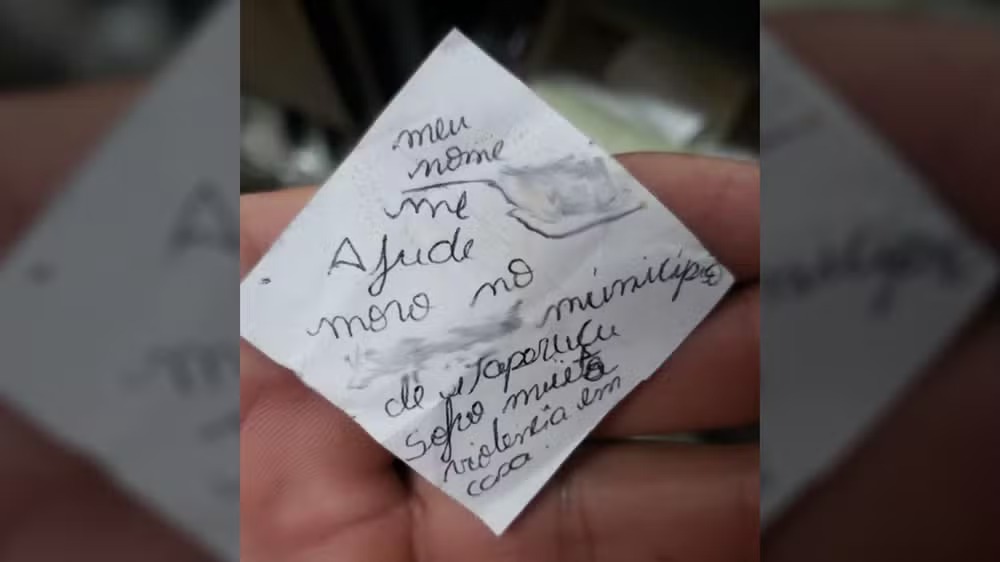 meu
nome
me
Ajude
moro no
município
de
Sofro muita
violencia em
casa.